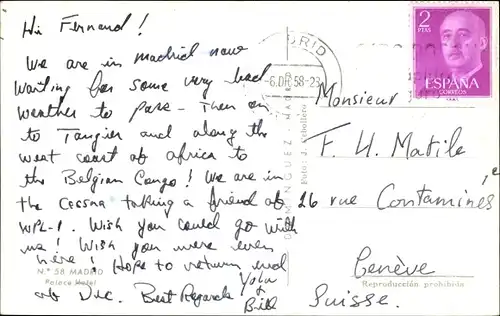 Hi Fernand!
We are in madrid now
waiting for some very bad
weather to pass - Then on
to Tangier and along the
west coast of africa to
the Belgian Congo! We are in
the Cessna taking a friend of
WPL-1. Wish you could go with
me! Wish you were even
here! Hope to return end
of Dec. Best Regards
Bill
N.º 58 MADRID
Palace Hotel
DOMINGUEZ - MADRID
MADRID
-6.DIC.58-23
2
PTAS
ESPAÑA
CORREOS
Monsieur
F. H. Matile
26 rue Contamines
Genève
Suisse.
Reproducción prohibida